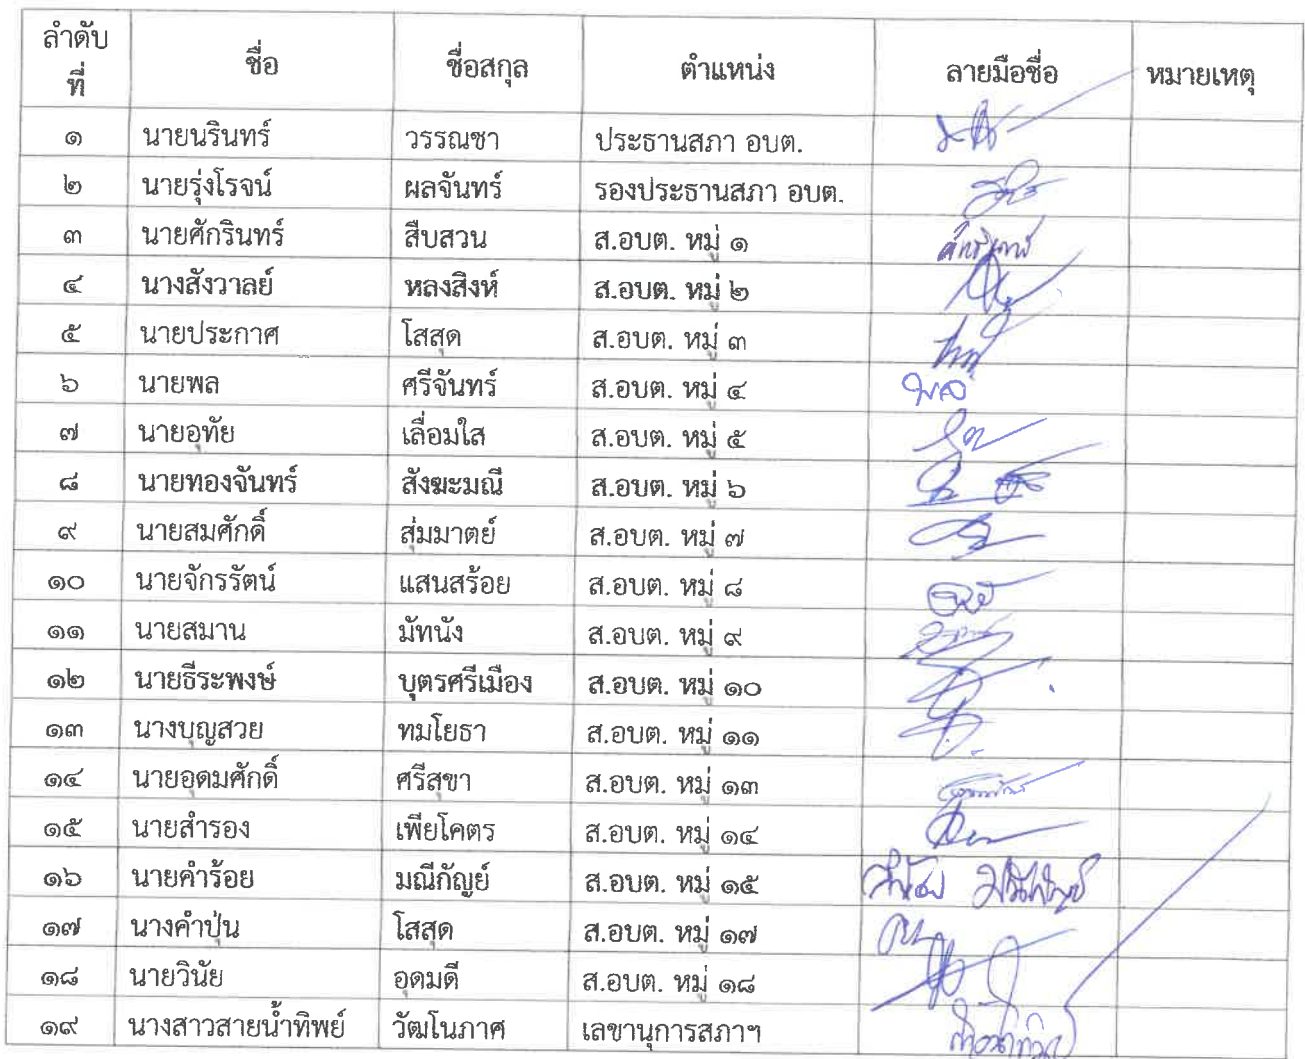 ลำดับที่ ชื่อ ชื่อสกุล ตำแหน่ง ลายมือชื่อ หมายเหตุ
๑ นายนรินทร์ วรรณชา ประธานสภา อบต.
๒ นายรุ่งโรจน์ ผลจันทร์ รองประธานสภา อบต.
๓ นายศักรินทร์ สืบสวน ส.อบต. หมู่ ๑
๔ นางสังวาลย์ หลงสิงห์ ส.อบต. หมู่ ๒
๕ นายประกาศ โสสุด ส.อบต. หมู่ ๓
๖ นายพล ศรีจันทร์ ส.อบต. หมู่ ๔ พล
๗ นายอุทัย เลื่อมใส ส.อบต. หมู่ ๕
๘ นายทองจันทร์ สังฆะมณี ส.อบต. หมู่ ๖
๙ นายสมศักดิ์ สุ่มมาตย์ ส.อบต. หมู่ ๗
๑๐ นายจักรรัตน์ แสนสร้อย ส.อบต. หมู่ ๘
๑๑ นายสมาน มัทนัง ส.อบต. หมู่ ๙
๑๒ นายธีระพงษ์ บุตรศรีเมือง ส.อบต. หมู่ ๑๐
๑๓ นางบุญสวย ทมโยธา ส.อบต. หมู่ ๑๑
๑๔ นายอุดมศักดิ์ ศรีสุขา ส.อบต. หมู่ ๑๓
๑๕ นายสำรอง เพียโคตร ส.อบต. หมู่ ๑๔
๑๖ นายคำร้อย มณีกัญย์ ส.อบต. หมู่ ๑๕
๑๗ นางคำปุ่น โสสุด ส.อบต. หมู่ ๑๗
๑๘ นายวินัย อุดมดี ส.อบต. หมู่ ๑๘
๑๙ นางสาวสายน้ำทิพย์ วัฒโนภาศ เลขานุการสภาฯ